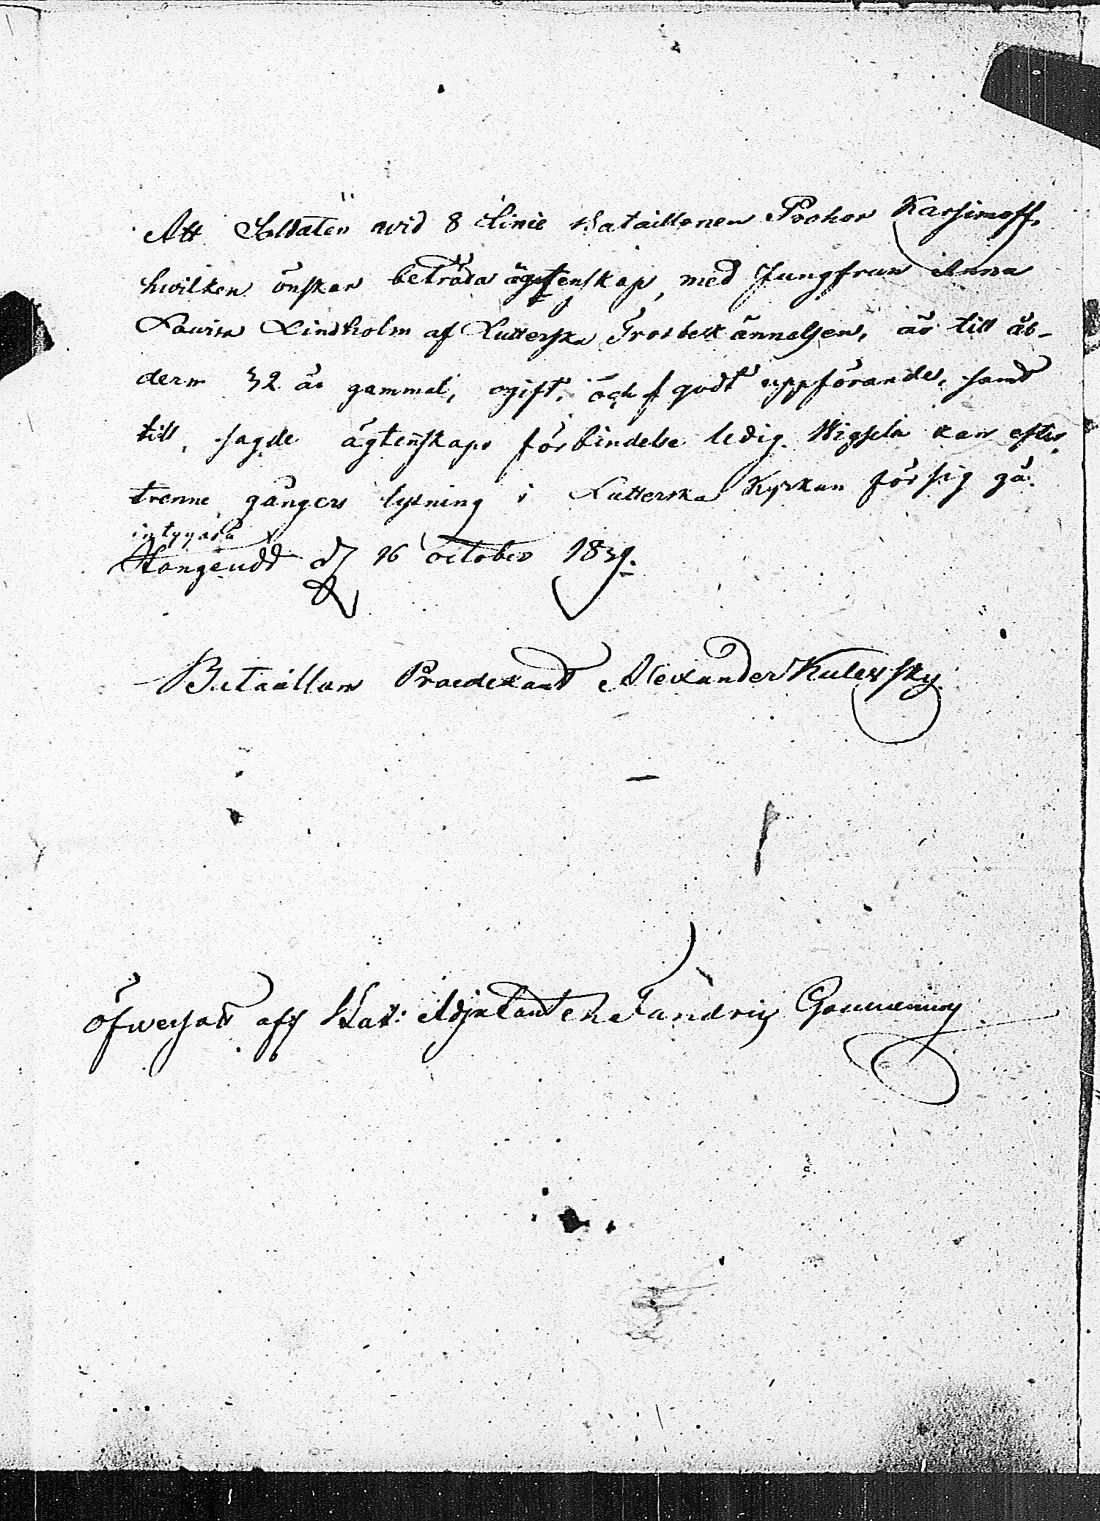 Att Soldaten wid 8 Linie Bataillonen Prohor Karsimoff,
hwilken önskar beträda ägtenskap, med Jungfrun Anna
Lowisa Lindholm af Lutterska Trosbekännelsen, är till ål-
derm 32 år gammal, ogift, och f godt uppförande, samt
till, sagde ägtenskaps förbindelse ledig. Wigseln kan efter,
trenne gångers lysning i Lutterska Kyrkan för sig gå.
intygas
Hangeudd d 16 october 1839.
Bataillons Praedekant Alexander Kulewsky
Öfwersatt aff Bat: Adjutanten Fändrig